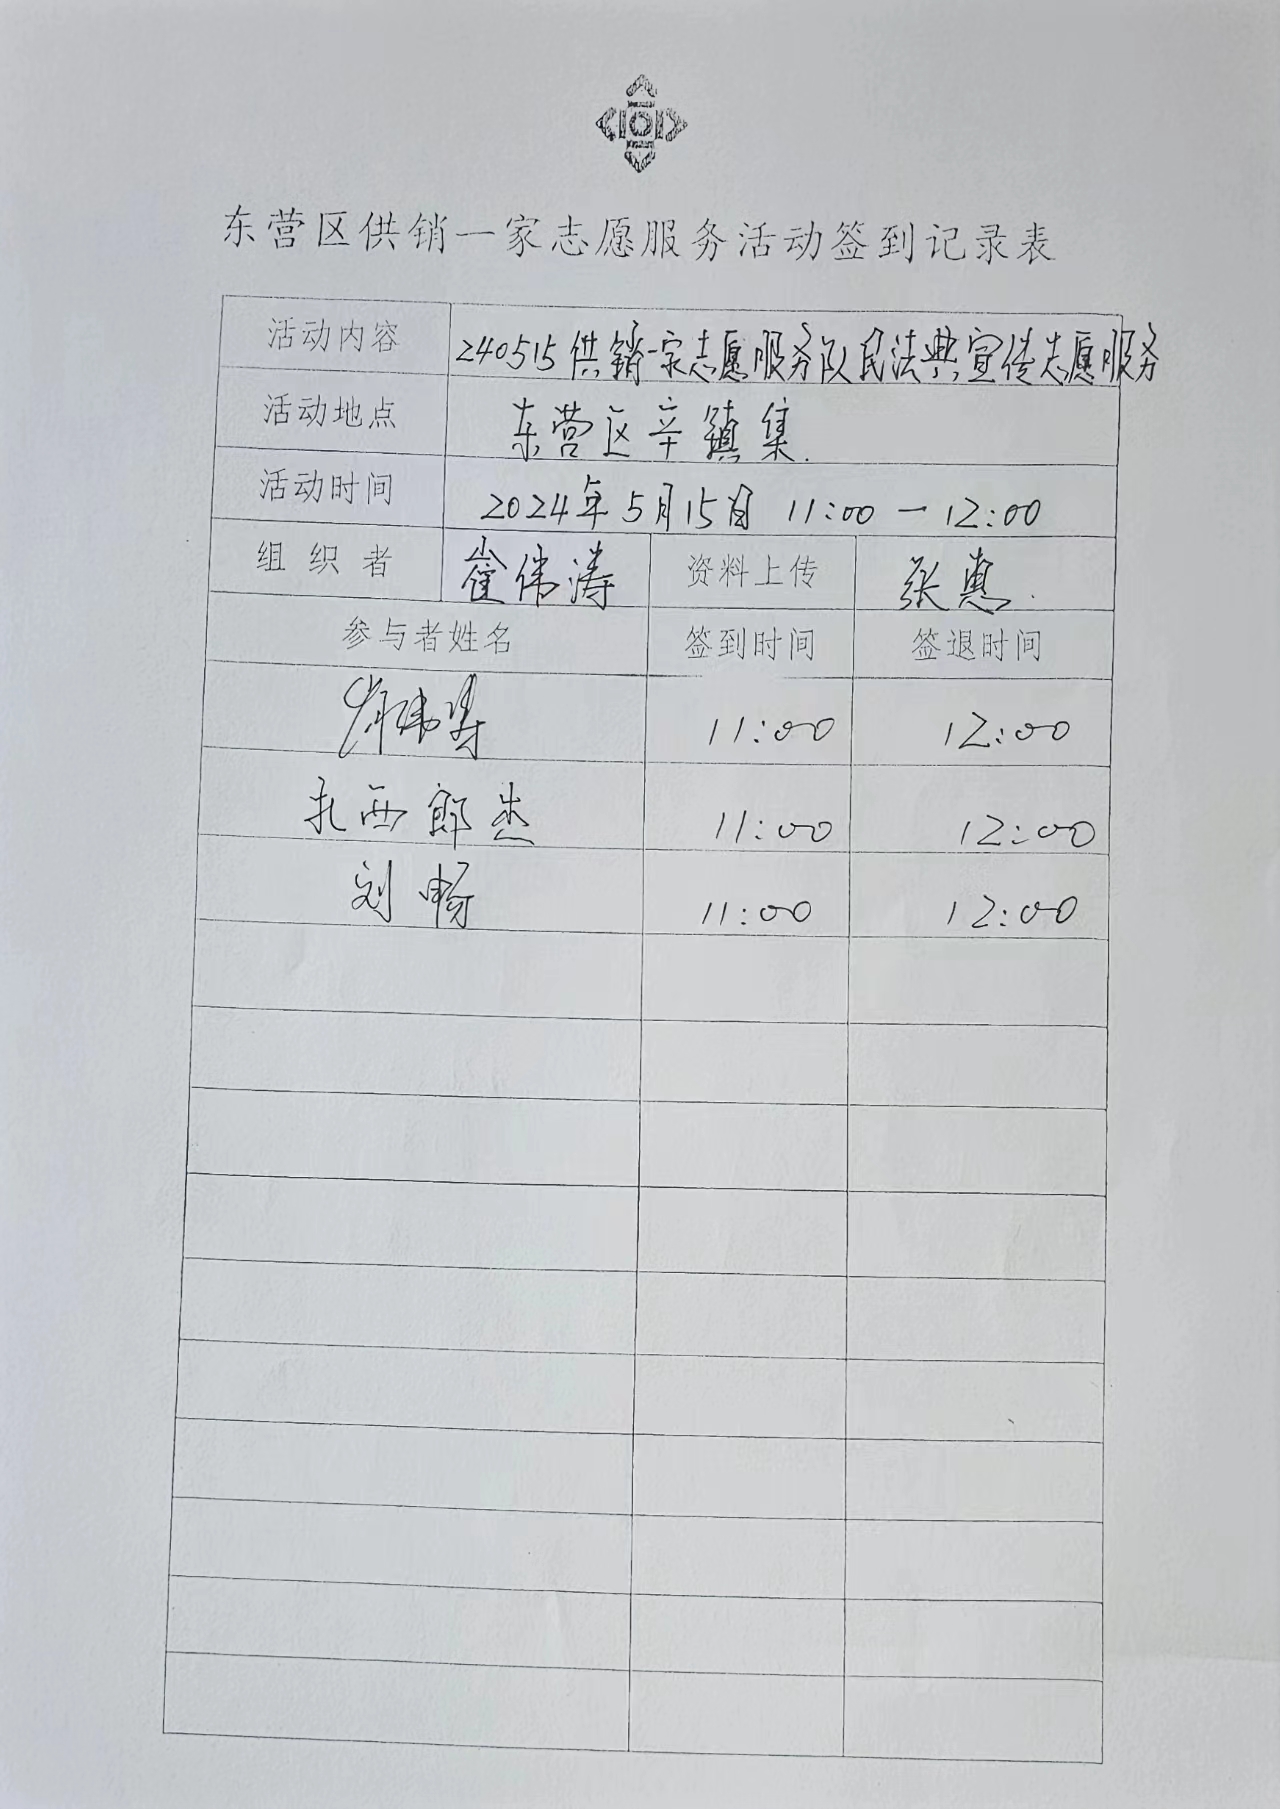 东营区供销一家志愿服务活动签到记录表
活动内容 240515供销一家志愿服务队民法典宣传志愿服务
活动地点 东营区辛镇集.
活动时间 2024年5月15日 11:00-12:00
组织者 崔伟涛 资料上传 张惠.
参与者姓名 签到时间 签退时间
崔伟涛 11:00 12:00
扎西郎杰 11:00 12:00
刘畅 11:00 12:00